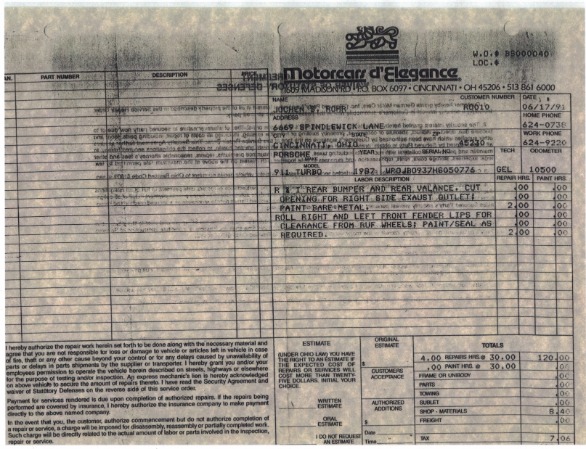 W.O.# BS000040
LOC.#
Motorcars d'Elegance
MADISON RD. P.O. BOX 6097 • CINCINNATI • OH 45206 • 513 861 6000
QAN. PART NUMBER DESCRIPTION PRICE
NAME CUSTOMER NUMBER DATE
R0010 06/17/91
ADDRESS HOME PHONE
6669 SPINDLEWICK LANE 624-0738
CITY STATE WORK PHONE
CINCINNATI, OHIO 45230 624-9220
MAKE YEAR SERIAL NO. TECH ODOMETER
PORSCHE
MODEL
911 TURBO 1987 WP0JB0937HS050776 GEL 10500
LABOR DESCRIPTION REPAIR HRS. PAINT HRS.
R & I REAR BUMPER AND REAR VALANCE. CUT .00 .00
OPENING FOR RIGHT SIDE EXAUST OUTLET; .00 .00
PAINT BARE METAL. 2.00 .00
ROLL RIGHT AND LEFT FRONT FENDER LIPS FOR .00 .00
CLEARANCE FROM RUF WHEELS; PAINT/SEAL AS .00 .00
REQUIRED. 2.00 .00
I hereby authorize the repair work herein set forth to be done along with the necessary material and
agree that you are not responsible for loss or damage to vehicle or articles left in vehicle in case
of fire, theft or any other cause beyond your control or for any delays caused by unavailability of
parts or delays in parts shipments by the supplier or transporter. I hereby grant you and/or your
employees permission to operate the vehicle herein described on streets, highways or elsewhere
for the purpose of testing and/or inspection. An express mechanic's lien is hereby acknowledged
on above vehicle to secure the amount of repairs thereto. I have read the Security Agreement and
waiver of Statutory Defenses on the reverse side of this service order.
Payment for services rendered is due upon completion of authorized repairs. If the repairs being
performed are covered by insurance, I hereby authorize the insurance company to make payment
directly to the above named company.
In the event that you, the customer, authorize commencement but do not authorize completion of
a repair or service, a charge will be imposed for disassembly, reassembly or partially completed work.
Such charge will be directly related to the actual amount of labor or parts involved in the inspection,
repair or service.
ESTIMATE
(UNDER OHIO LAW) YOU HAVE
THE RIGHT TO AN ESTIMATE IF
THE EXPECTED COST OF
REPAIRS OR SERVICES WILL
COST MORE THAN TWENTY-
FIVE DOLLARS. INITIAL YOUR
CHOICE.
WRITTEN
ESTIMATE
ORAL
ESTIMATE
I DO NOT REQUEST
AN ESTIMATE
ORIGINAL
ESTIMATE
$
CUSTOMERS
ACCEPTANCE
AUTHORIZED
ADDITIONS
$
Date
Time
TOTALS
4.00 REPAIRS HRS. @ 30.00 120.00
.00 PAINT HRS. @ 30.00 .00
FRAME OR UNIBODY .00
PARTS .00
TOWING .00
SUBLET .00
SHOP - MATERIALS 8.40
FREIGHT .00
TAX 7.06